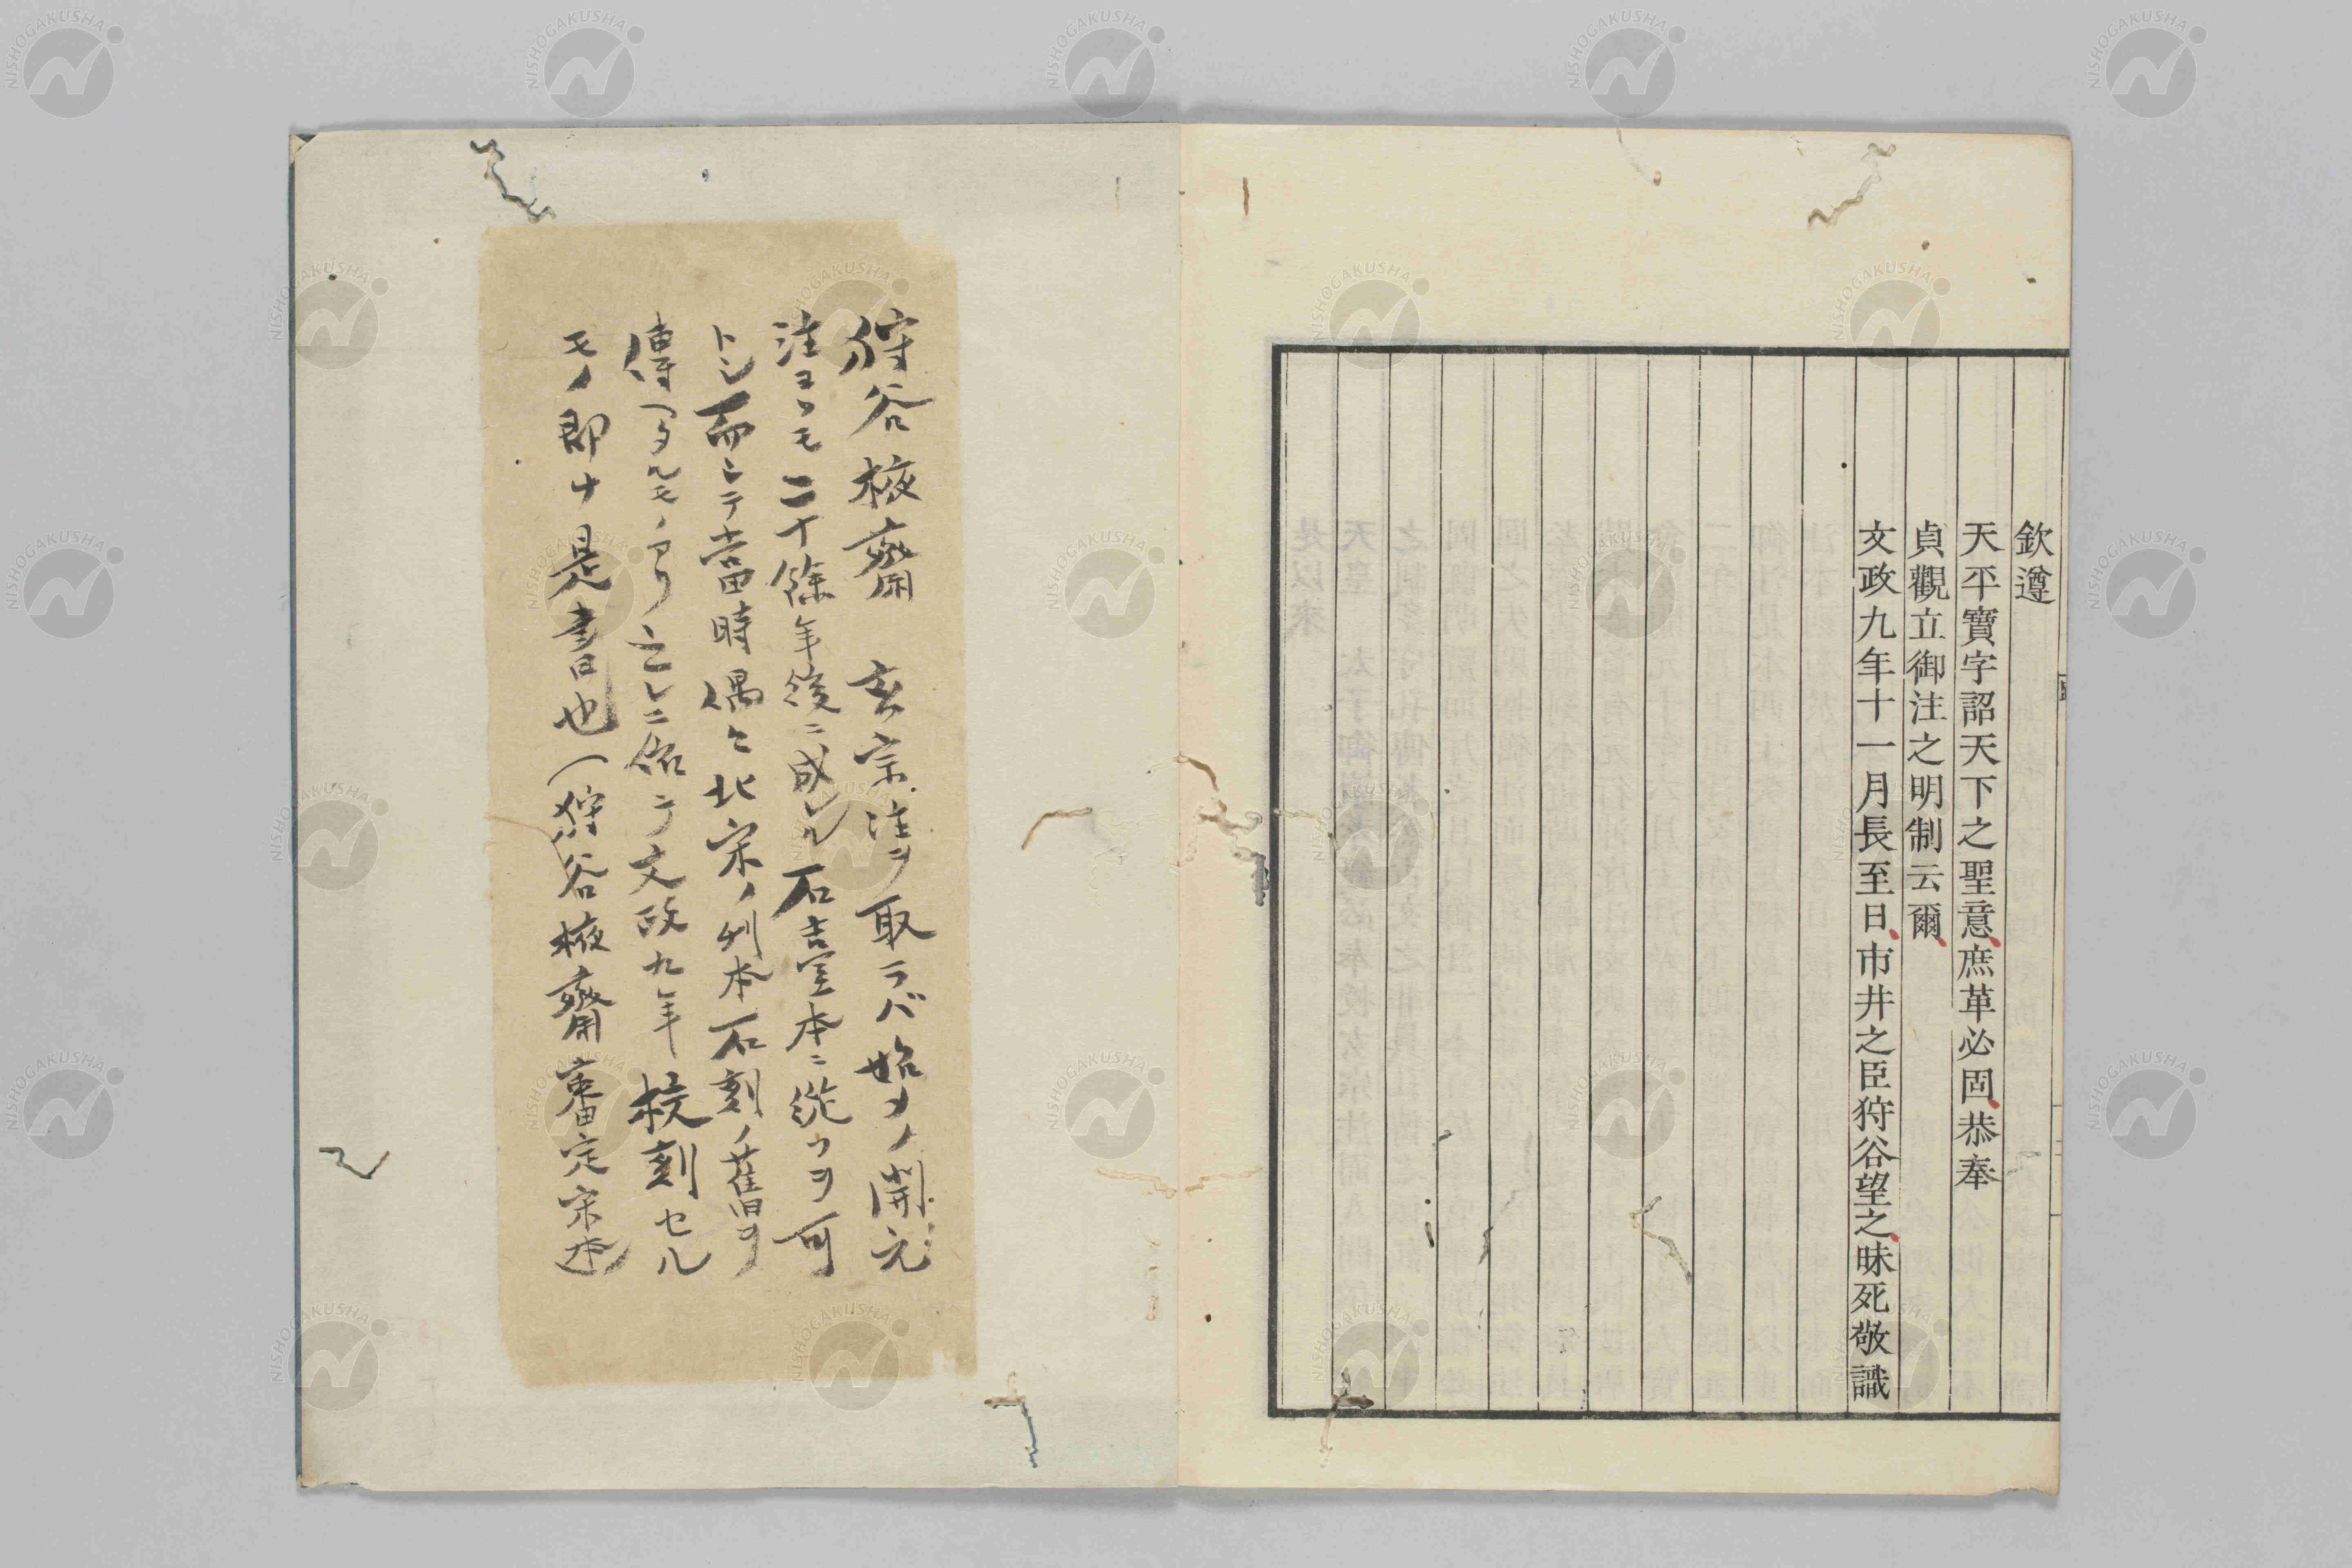 欽遵
天平寶字詔天下之聖意庶革必固恭奉
貞觀立御注之明制云爾
文政九年十一月長至日市井之臣狩谷望之昧死敬識
狩谷棭齋 玄宗注ヲ取ラバ始メノ開元
注ヨリモ二十餘年後ニ成レル石臺本ニ從フヲ可
トシ而シテ當時偶々北宋ノ刊本石刻ノ舊ヲ
傳ヘタルモノアリ之レニ依テ文政九年 校刻セル
モノ即ナ是書也(狩谷棭齋審定宋本)
NISHOGAKUSHA